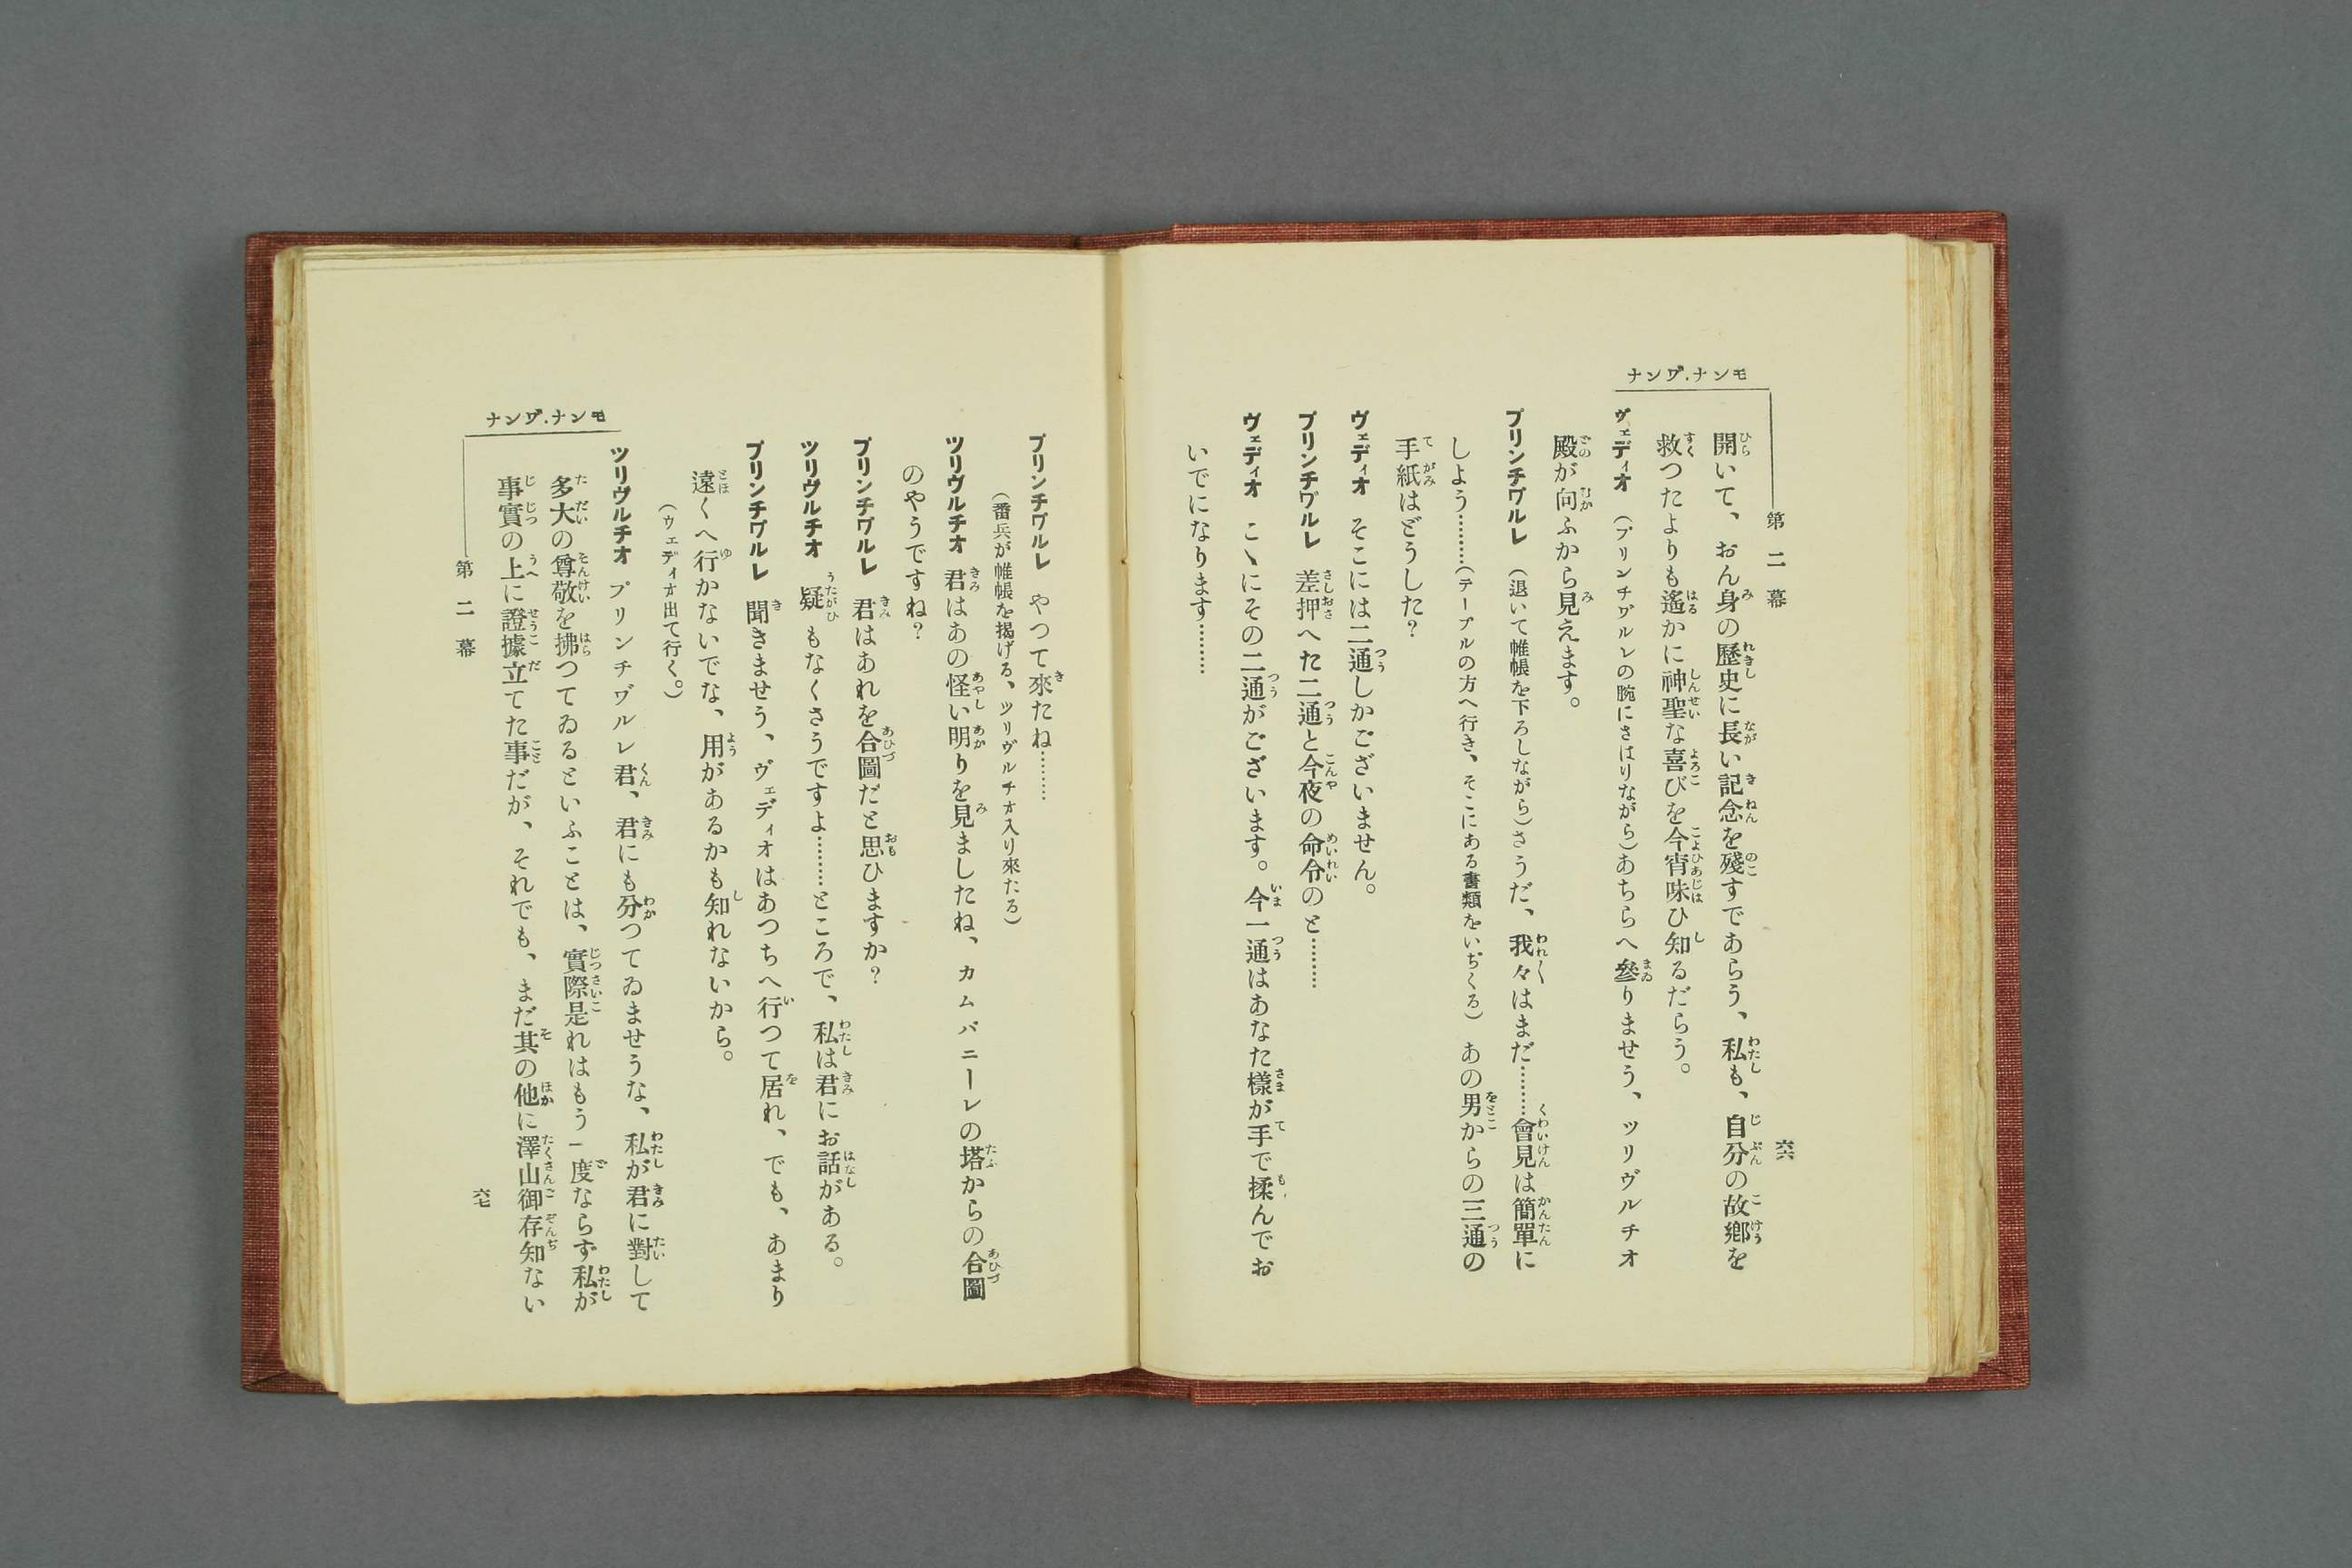 モンナ.ヷンナ
第二幕
六六
開いて、おん身の歷史に長い記念を殘すであらう、私も、自分の故鄕を
救つたよりも遙かに神聖な喜びを今宵味ひ知るだらう。
ヴェディオ (プリンチヷルレの腕にさはりながら)あちらへ參りませう、ツリヴルチオ
殿が向ふから見えます。
プリンチヷルレ (退いて帷帳を下ろしながら)さうだ、我々はまだ………會見は簡單に
しよう………(テーブルの方へ行き、そこにある書類をいぢくる) あの男からの三通の
手紙はどうした?
ヴェディオ そこには二通しかございません。
プリンチヷルレ 差押へた二通と今夜の命令のと………
ヴェディオ こヽにその二通がございます。今一通はあなた樣が手で揉んでお
いでになります………
プリンチヷルレ やつて來たね………
(番兵が帷帳を揭げる、ツリヴルチオ入り來たる)
ツリヴルチオ 君はあの怪い明りを見ましたね、カムパニーレの塔からの合圖
のやうですね?
プリンチヷルレ 君はあれを合圖だと思ひますか?
ツリヴルチオ 疑もなくさうですよ………ところで、私は君にお話がある。
プリンチヷルレ 聞きませう、ヴェディオはあつちへ行つて居れ、でも、あまり
遠くへ行かないでな、用があるかも知れないから。
(ヴェディオ出て行く。)
ツリヴルチオ プリンチヷルレ君、君にも分つてゐませうな、私が君に對して
多大の尊敬を拂つてゐるといふことは、實際是れはもう一度ならず私が
事實の上に證據立てた事だが、それでも、まだ其の他に澤山御存知ない
モンナ.ヷンナ
第二幕
六七